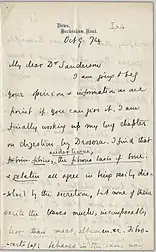 Down,
Beckenham, Kent.
Oct 9. 74
My dear Dr Sanderson
I am going to beg
your opinion & information on one
point if you can give it. I am
finally working up my long chapter
on digestion by Drosera. I find that
fibrin, the fibrous basis of bone,
& gelatin all agree in being easily dis-
-solved by the secretion, but none of them
excite the leaves much, incomparably
less than meat, albumen, &c.
behaves in the same